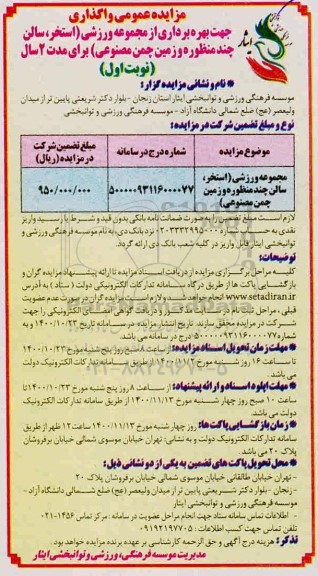 مزایده عمومی واگذاری
جهت بهره برداری از مجموعه ورزشی (استخر، سالن
چند منظوره و زمین چمن مصنوعی) برای مدت ۲ سال
(نوبت اول)
ایثار
* نام و نشانی مزایده گزار:
موسسه فرهنگی ورزشی و توانبخشی ایثار استان زنجان - بلوار دکتر شریعتی پایین تر از میدان
ولیعصر (عج) ضلع شمالی دانشگاه آزاد - موسسه فرهنگی ورزشی و توانبخشی
* نوع و مبلغ تضمین شرکت در مزایده:
موضوع مزایده
شماره درج در سامانه
مبلغ تضمین شرکت در مزایده (ریال)
مجموعه ورزشی (استخر، سالن چند منظوره و زمین چمن مصنوعی)
۵۰۰۰۰۹۳۱۱۶۰۰۰۰۷۷
۹۵۰/۰۰۰/۰۰۰
لازم است مبلغ تضمین را به صورت ضمانت نامه بانکی بدون قید و شرط یا رسید واریز
نقدی به حساب شماره نزد بانک دی، به نام موسسه فرهنگی ورزشی و
توانبخشی ایثار قابل واریز در کلیه شعب بانک دی ارائه گردد.
توضیحات:
کلیه مراحل برگزاری مزایده از دریافت اسناد مزایده تا ارائه پیشنهاد مزایده گران و
بازگشایی پاکت ها از طریق درگاه سامانه تدارکات الکترونیکی دولت (ستاد) به آدرس
www.setadiran.ir انجام خواهد شد و لازم است مزایده گران در صورت عدم عضویت
قبلی، مراحل ثبت نام در سایت مذکور و دریافت گواهی امضای الکترونیکی را جهت
شرکت در مزایده محقق سازند. تاریخ انتشار مزایده در سامانه تاریخ ۱۴۰۰/۱۰/۲۳ به
شماره ۵۰۰۰۰۹۳۱۱۶۰۰۰۰۷۷ درج می شود.
* مهلت زمان تحویل اسناد مزایده: از ساعت ۸ صبح روز پنج شنبه مورخ ۱۴۰۰/۱۰/۲۳
تا ساعت ۱۶ روز شنبه مورخ از طریق سامانه تدارکات الکترونیک دولت
می باشد.
* مهلت آپلود اسناد و ارائه پیشنهاد: از ساعت ۸ روز پنج شنبه مورخ ۱۴۰۰/۱۰/۲۳ تا
ساعت ۱۰ صبح روز چهار شنبه مورخ ۱۴۰۰/۱۱/۱۳ از طریق سامانه تدارکات الکترونیک
دولت می باشد.
* زمان بازگشایی پاکت ها: روز چهار شنبه مورخ ۱۴۰۰/۱۱/۱۳ ساعت ۱۲ ظهر از طریق
سامانه تدارکات الکترونیک دولت و به نشانی: تهران خیابان موسوی شمالی خیابان برفروشان
پلاک ۲۰ می باشد.
* محل تحویل پاکت های تضمین به یکی از دو نشانی ذیل:
- تهران خیابان طالقانی خیابان موسوی شمالی خیابان برفروشان پلاک ۲۰
- زنجان - بلوار دکتر شریعتی پایین تر از میدان ولیعصر (عج) ضلع شمالی دانشگاه آزاد -
موسسه فرهنگی ورزشی و توانبخشی ایثار
- اطلاعات تماس سامانه ستاد جهت انجام مراحل عضویت در سامانه: مرکز تماس ۱۴۵۶-۰۲۱
تلفن تماس جهت کسب اطلاعات: ۰۹۱۹۲۱۹۷۷۰۵
تذکر: هزینه درج آگهی و حق الزحمه کارشناسی بر عهده برنده مزایده خواهد بود.
مدیریت موسسه فرهنگی، ورزشی و توانبخشی ایثار